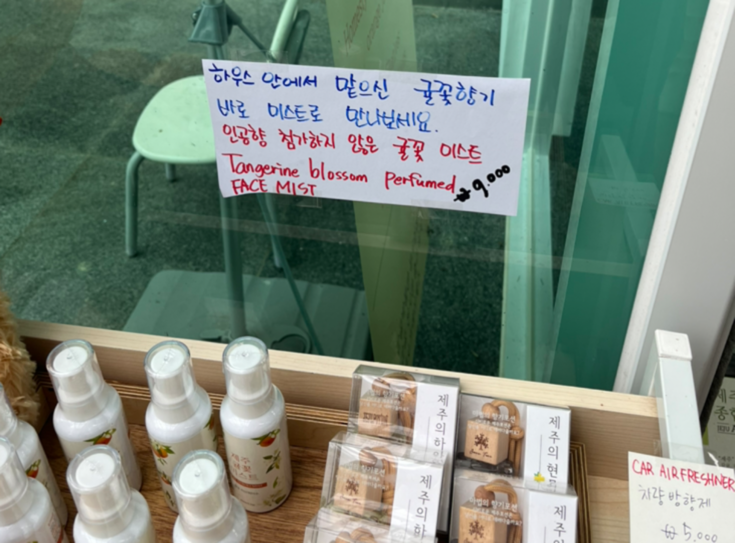 하우스 안에서 맡으신 귤꽃향기
바로 미스트로 만나보세요.
인공향 첨가하지 않은 귤꽃 미스트
Tangerine blossom perfumed
FACE MIST
₩9,000
제주의하
제주의현
제주의하
제주
미스트
CAR AIRFRESHNER
차량방향제
₩5,000